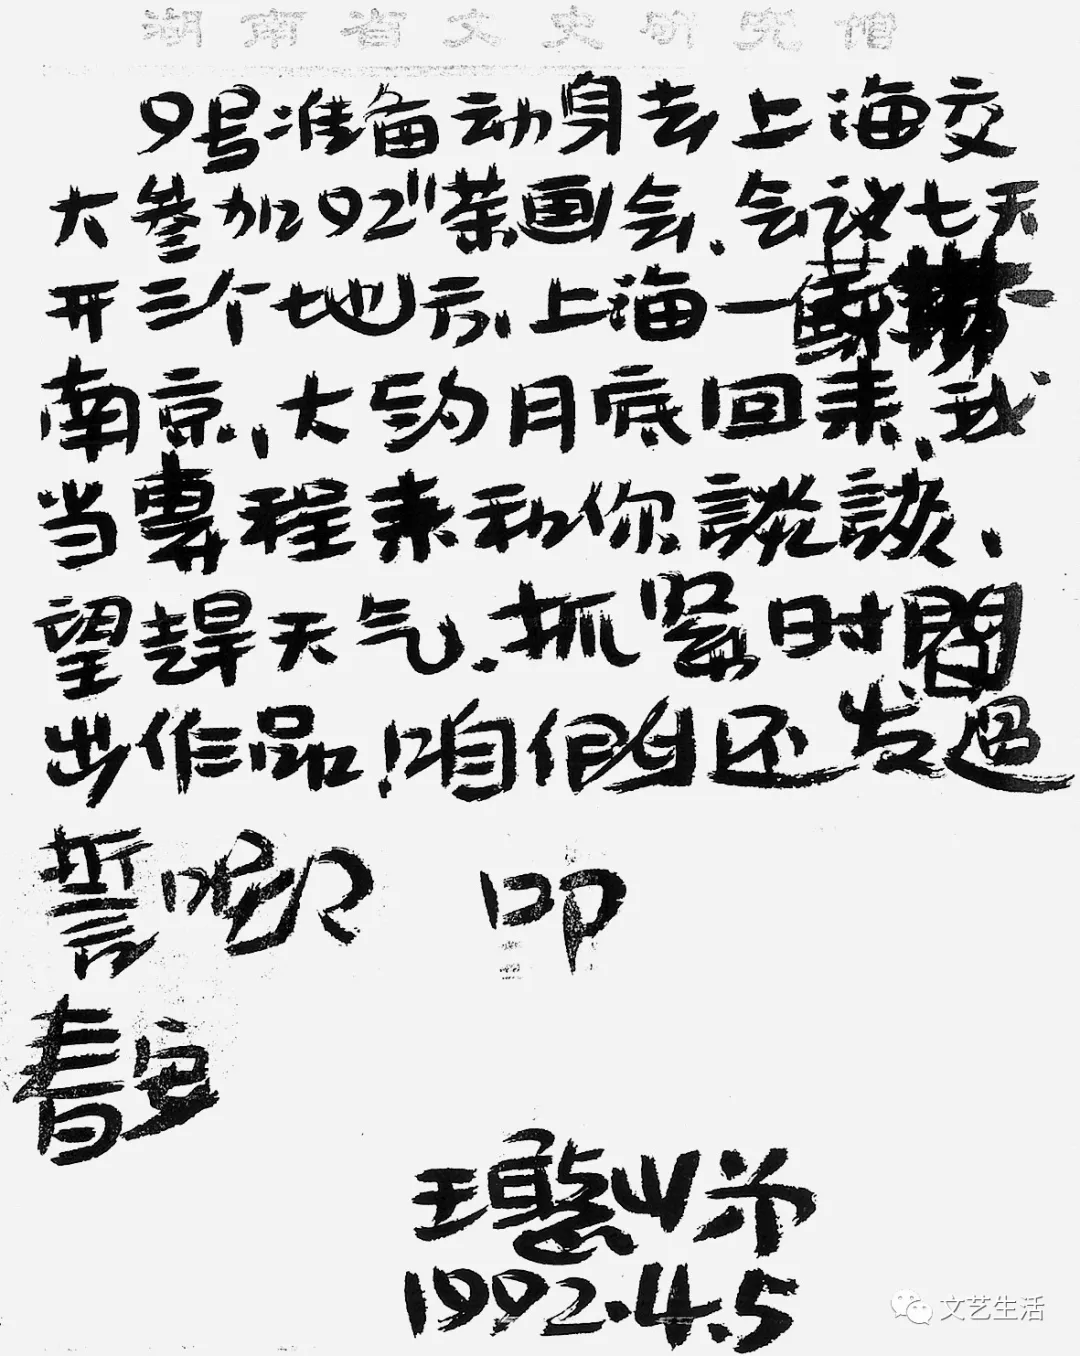 湖南省文史研究馆
9号准备动身去上海交
大参加92"荣画会、会议七天
开三个地方、上海一蘇
南京、大约月底回来、我
当專程来和你談談、
望趕天气、抓紧时間
出作品！咱们还发過
誓呢 叩
春安
王憨山 芾
1992.4.5
文艺生活